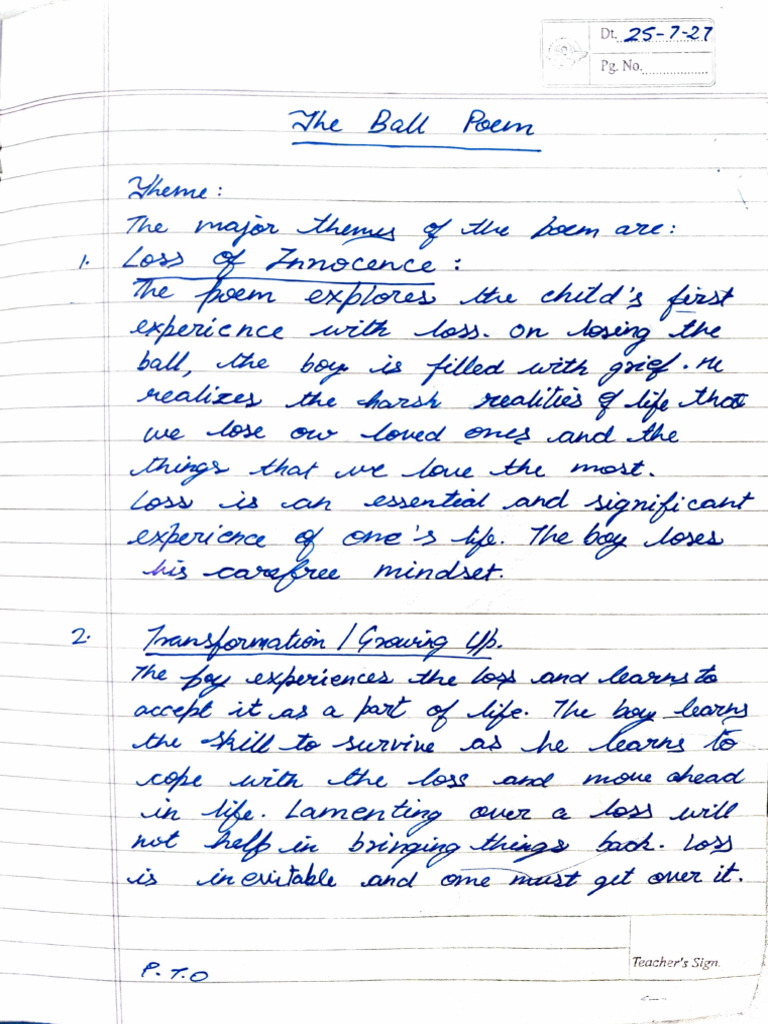 Dt. 25-7-27
Pg. No.
The Ball Poem
Theme:
The major themes of the poem are:
1. Loss of Innocence :
The poem explores the child's first
experience with loss. On losing the
ball, the boy is filled with grief. He
realizes the harsh realities of life that
we lose our loved ones and the
things that we love the most.
Loss is an essential and significant
experience of one's life. The boy loses
his carefree mindset.
2. Transformation / Growing Up.
The boy experiences the loss and learns to
accept it as a part of life. The boy learns
the skill to survive as he learns to
cope with the loss and move ahead
in life. Lamenting over a loss will
not help in bringing things back. Loss
is inevitable and one must get over it.
P.T.O
Teacher's Sign.